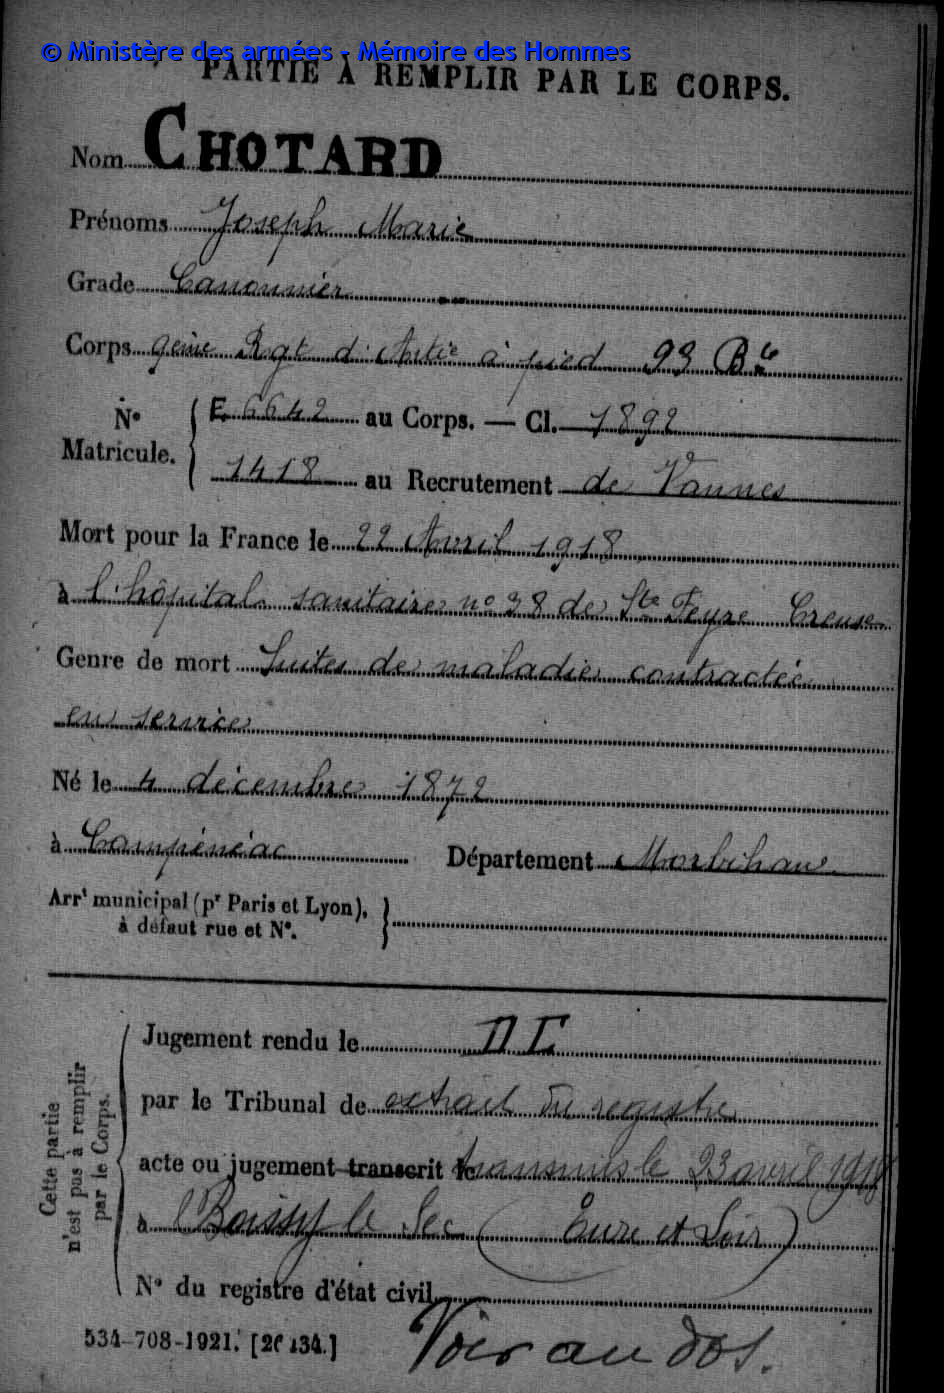 © Ministère des armées - Mémoire des Hommes
PARTIE À REMPLIR PAR LE CORPS.
Nom CHOTARD
Prénoms Joseph Marie
Grade Canonnier
Corps 9ème Rgt d'Artie à pied 93 Bie
N° Matricule. E 6642 au Corps. — Cl. 1892
1418 au Recrutement de Vannes
Mort pour la France le 22 Avril 1918
à l'hôpital sanitaire n° 38 de Ste Feyre Creuse
Genre de mort Suites de maladie contractée
en service
Né le 4 décembre 1872
à Campénéac Département Morbihan
Arrt municipal (pr Paris et Lyon),
à défaut rue et N°.
Cette partie
n'est pas à remplir
par le Corps.
Jugement rendu le
par le Tribunal de extrait du registre
acte ou jugement transcrit le transmis le 23 avril 1918
à Boissy le Sec (Eure et Loir)
N° du registre d'état civil
534-708-1921. [26134.]
Voir au dos.